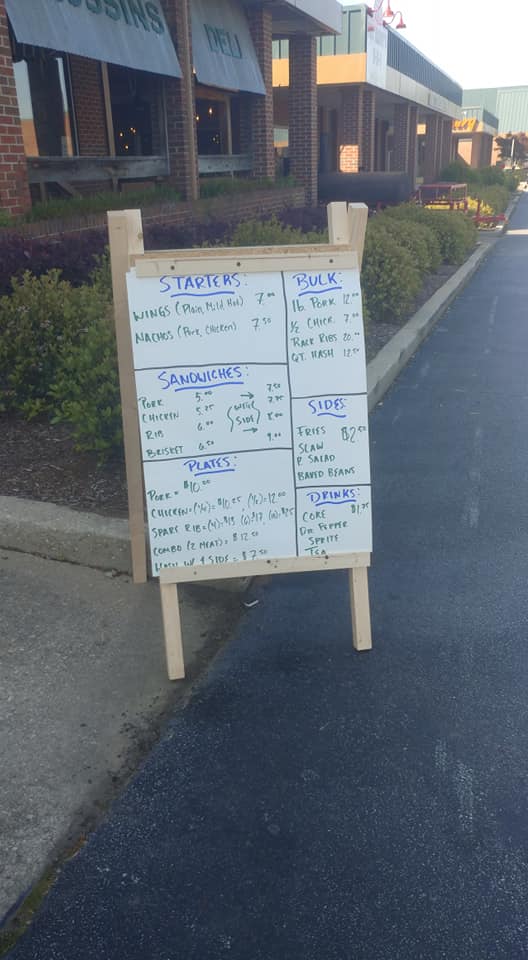 DELI
STARTERS:
WINGS (Plain, Mild Hot) 7.00
NACHOS (Pork, Chicken) 7.50
BULK:
lb. PORK 12.00
1/2 CHICK. 7.00
RACK RIBS 20.00
QT. HASH 12.50
SANDWICHES:
PORK 5.00 → 7.50
CHICKEN 5.25
RIB 6.00 SIDE 8.00
BRISKET 6.50 → 9.00
SIDES:
FRIES $2.50
SLAW
P. SALAD
BAKED BEANS
PLATES:
PORK = $10.00
CHICKEN = (1/4) = $10.25, (1/2) = 12.00
SPARE RIB = (4) = $13 (6) $17, (12) $25
COMBO (2 MEAT) = $12.50
HASH W/ 1 SIDE = $7.50
DRINKS:
COKE $1.75
DR. PEPPER
SPRITE
TEA